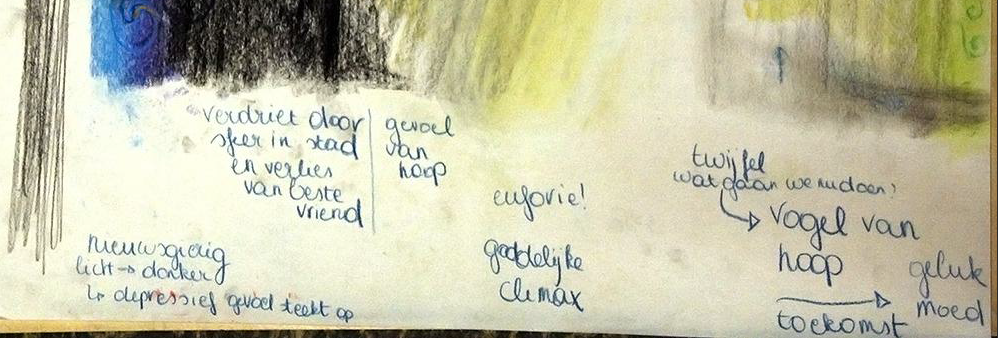 verdriet door
sfeer in stad
en verlies
van beste
vriend
gevoel
van
hoop
nieuwsgierig
licht → donker
↳ depressief gevoel steekt op
euforie!
goddelijke
climax
twijfel
wat gaan we nu doen?
vogel van
hoop
toekomst
geluk
moed